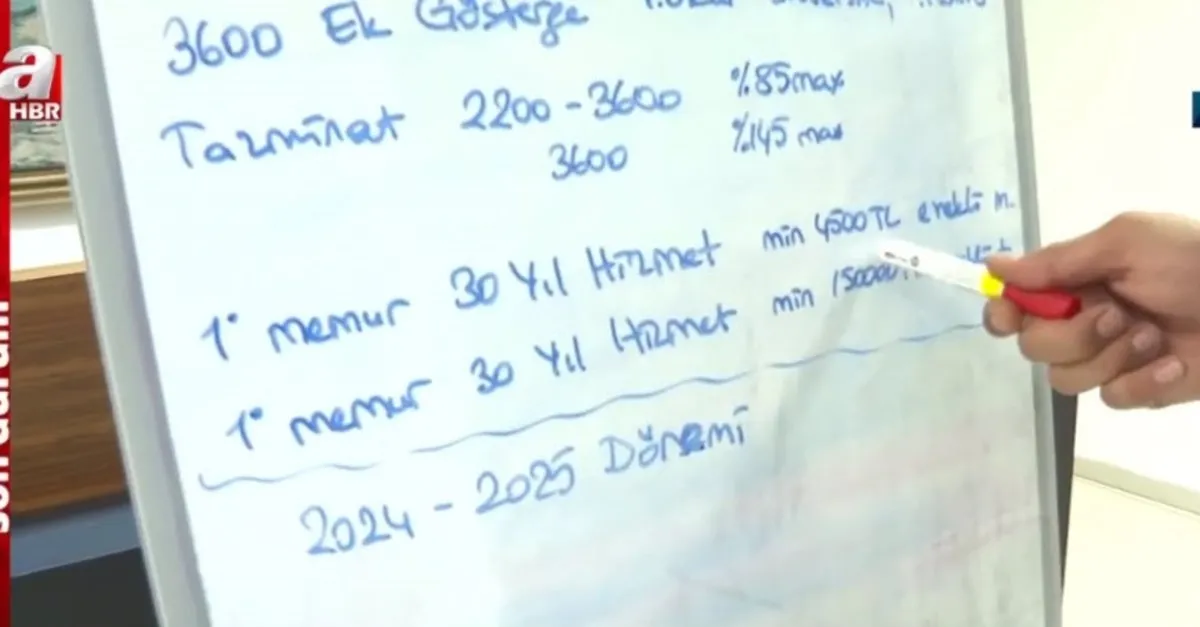 3600 Ek Gösterge
Tazminat 2200 - 3600 %85 max
3600 %145 max
1° memur 30 Yıl Hizmet min 4500 TL emekli m.
1° memur 30 Yıl Hizmet min 150000
2024 - 2025 Dönemi
a
HBR
son durum